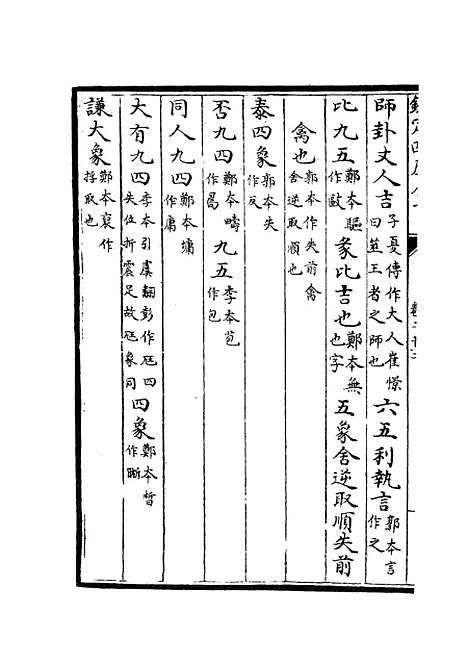 師卦丈人吉子夏傳作大人崔憬曰並王者之師也六五利執言郭本言作之
比九五鄭本驅作毆彖比吉也鄭本無也字五象舍逆取順失前
禽也郭本作失前禽舍逆取順也
泰四象郭本失作反
否九四鄭本疇作九五李本苞作包
同人九四鄭本墉作庸
大有九四李本引虞翻彭作尫四失位折震足故尫象同四象鄭本晢作晣
謙大象鄭本裒作捊取也